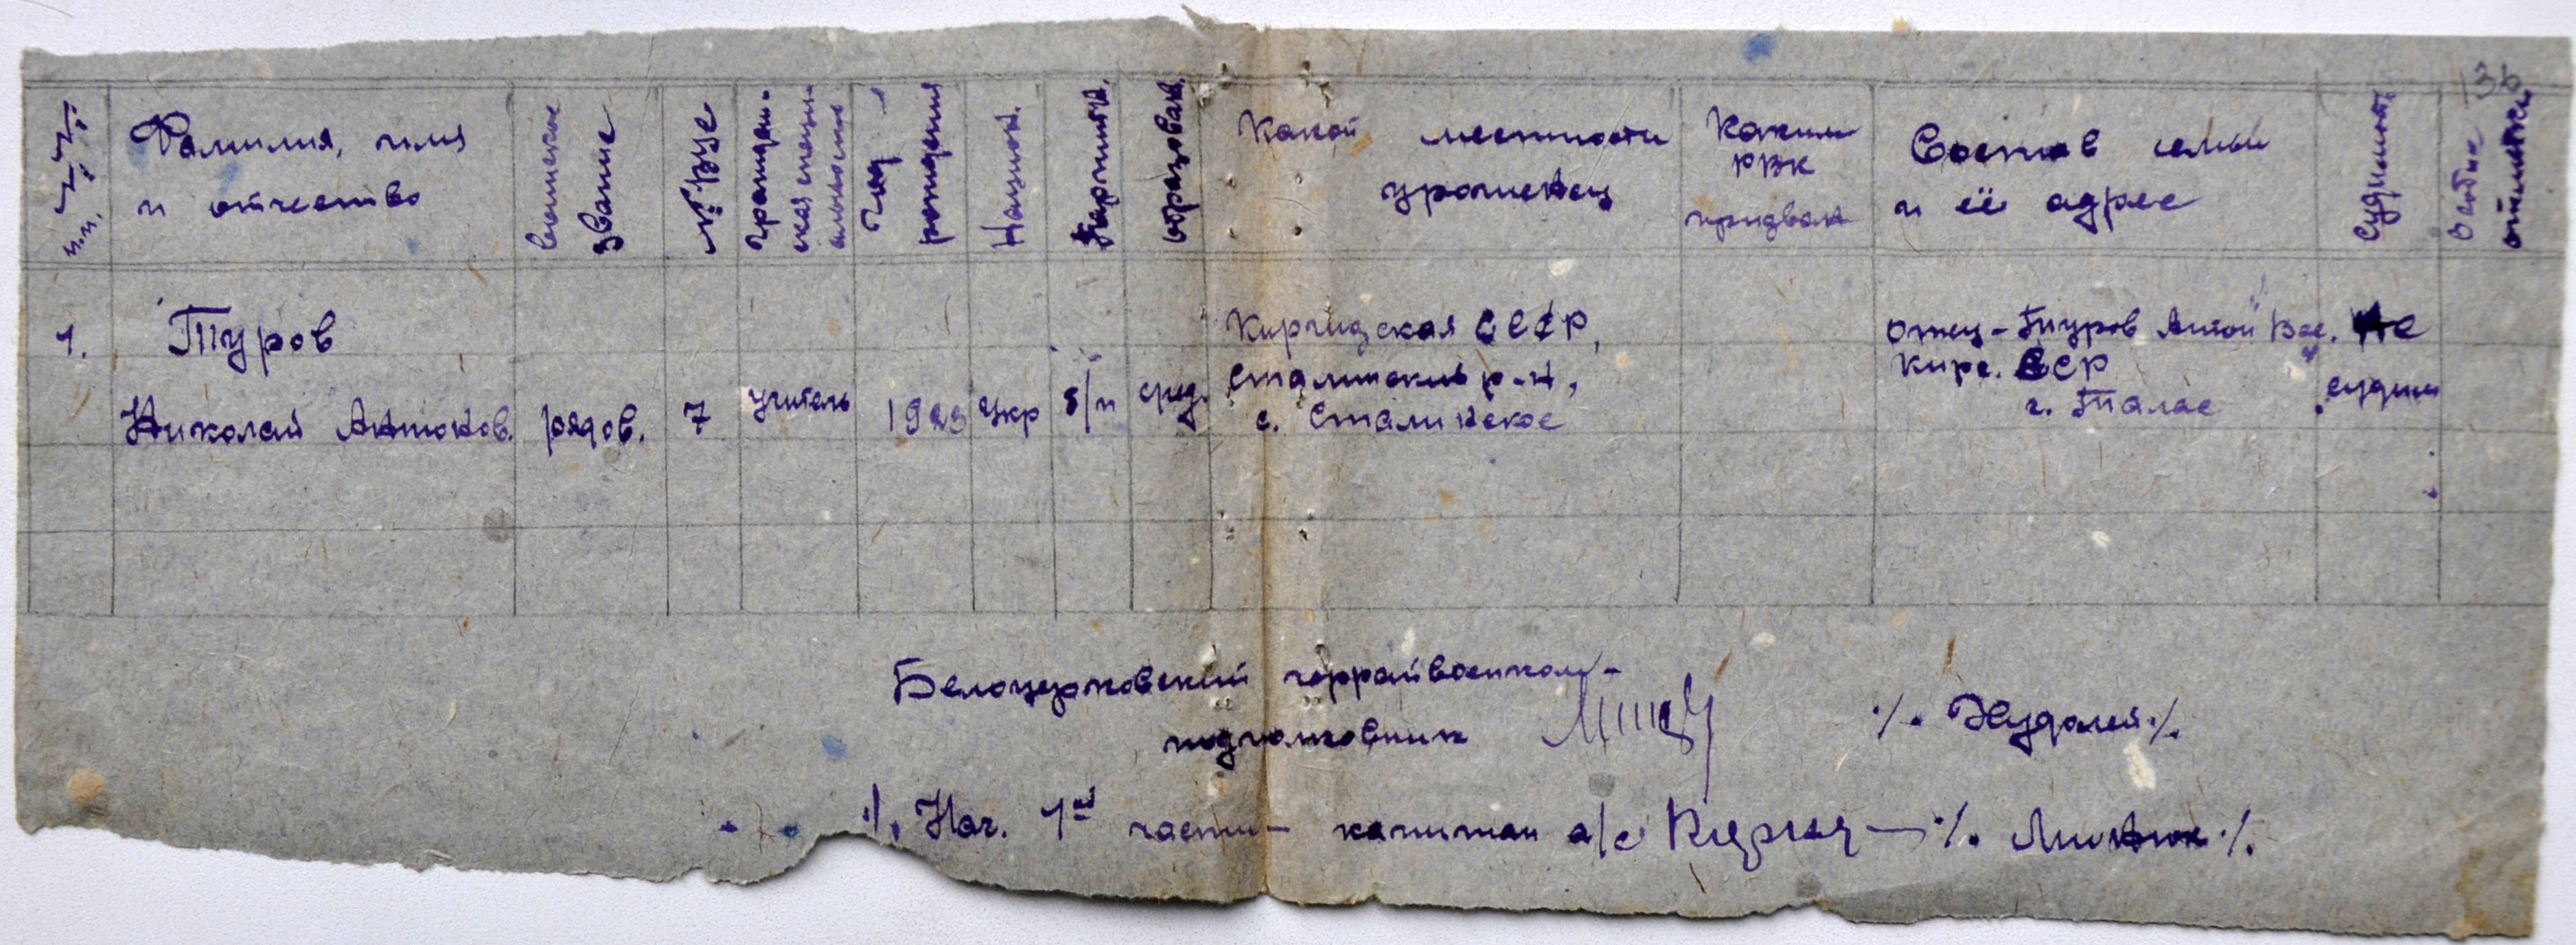 136
№ п.п.
Фамилия, имя
и отчество
воинское
звание
№ ВУС
граждан-
ская специ-
альность
Год
рождения
Национ.
Партийн.
образован.
Какой местности
уроженец
Каким
РВК
призван
Состав семьи
и её адрес
Судимость
Особые
отметки
1.
Туров
Николай Антонов.
рядов.
7
учитель
1923
Укр
б/п
сред.
Киргизская ССР,
Сталинский р-н,
с. Сталинское
отец - Туров Антон Вас.
Кирг. ССР
г. Талас
Не
судим
Белоцерковский горрайвоенком -
подполковник ./. Худолей ./.
./. Нач. 1ой части - капитан а/с ./.  ./.